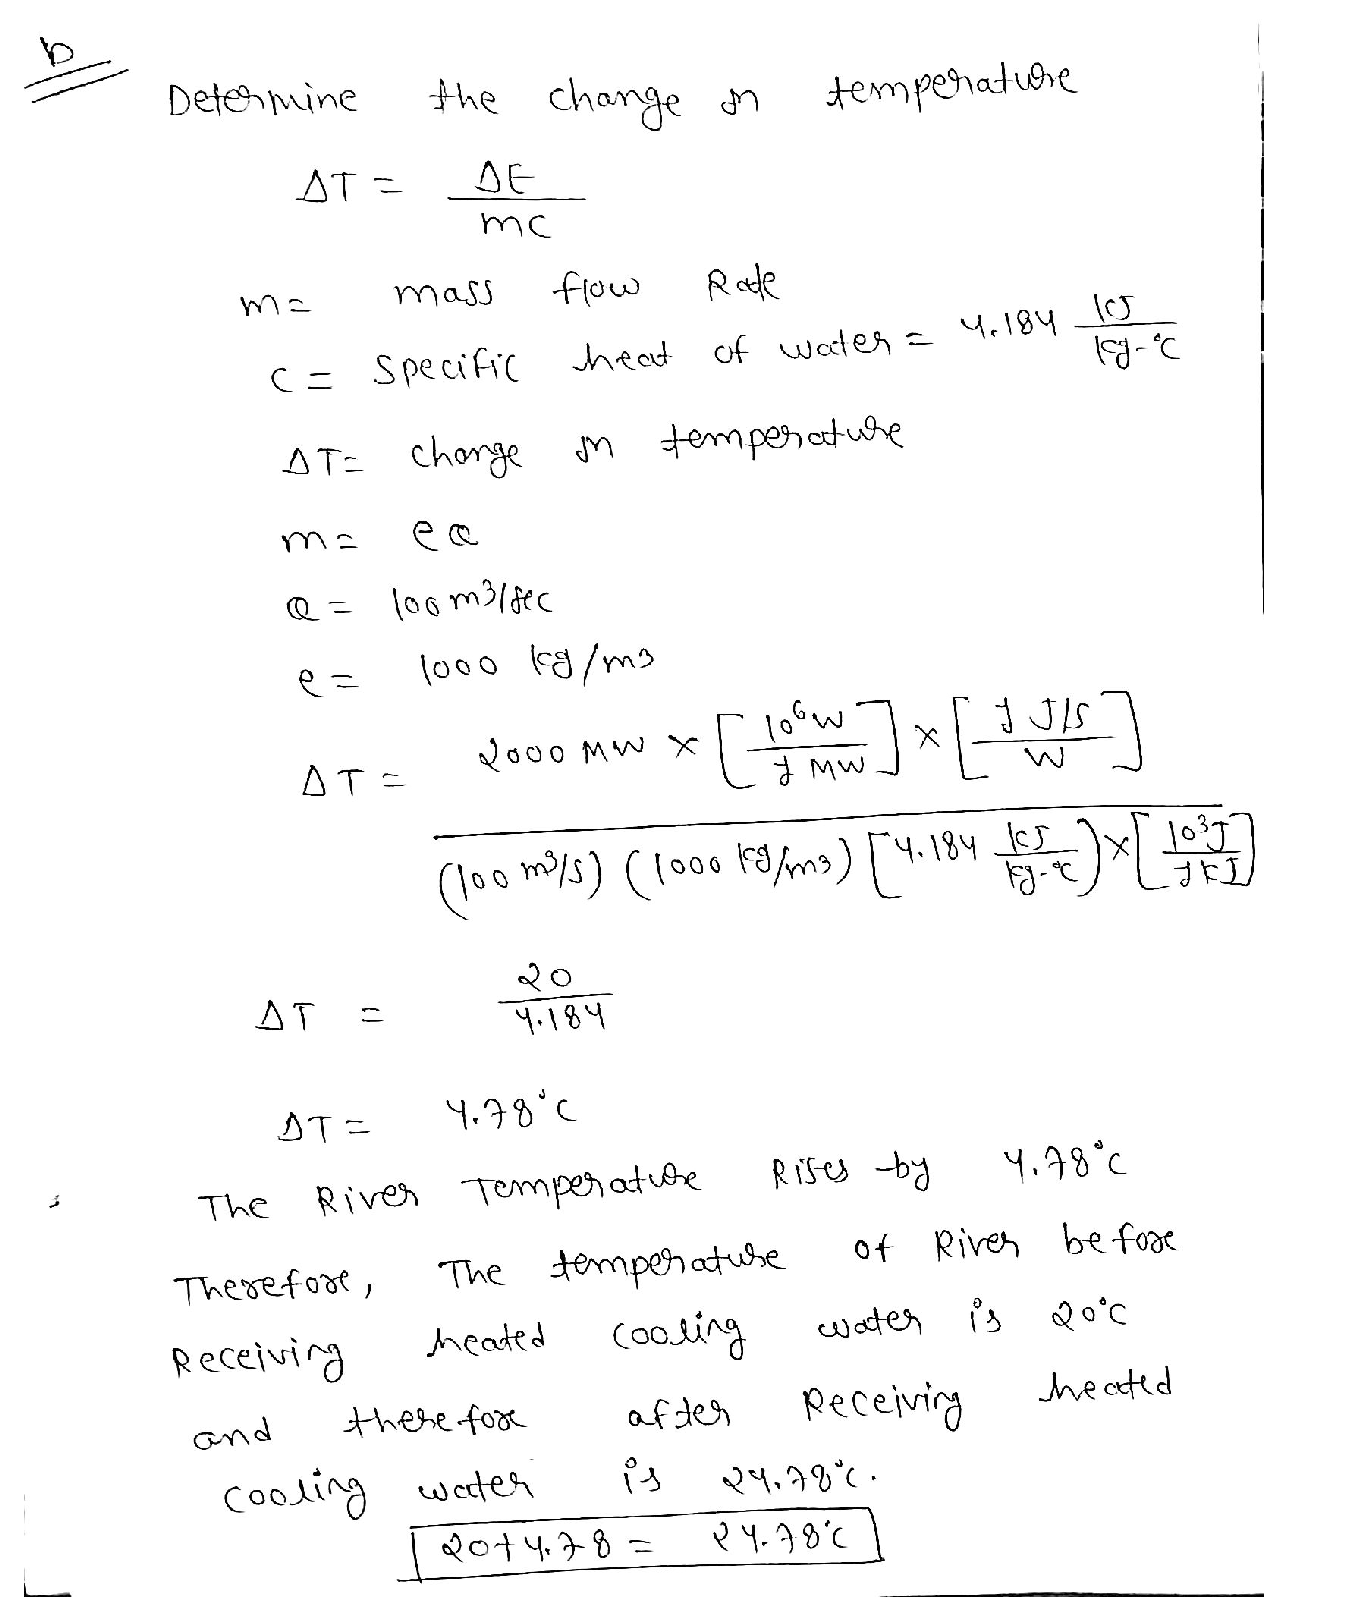 b
Determine the change in temperature
ΔT = ΔE / mc
m = mass flow Rate
c = specific heat of water = 4.184 kJ / kg-°C
ΔT = change in temperature
m = ρQ
Q = 100 m3/sec
ρ = 1000 kg/m3
ΔT = 2000 MW × [10⁶W / 1 MW] × [1 J/S / W]
(100 m³/s) (1000 kg/m3) [4.184 kJ / kg-°C) × [10³J / 1 kJ]
ΔT = 20 / 4.184
ΔT = 4.78°C
The River Temperature Rises by 4.78°C
Therefore, The temperature of River before
Receiving heated cooling water is 20°C
and therefore after Receiving heated
cooling water is 24.78°C.
20+4.78 = 24.78°C